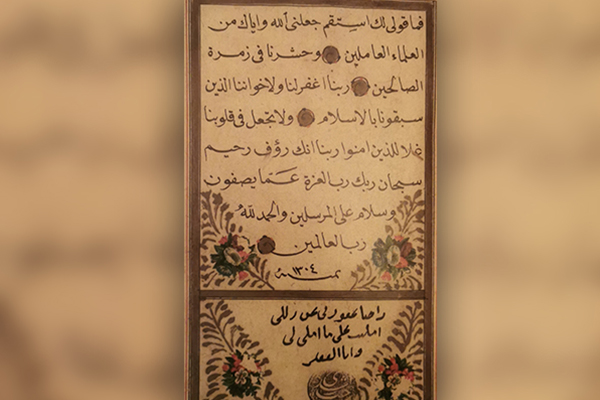 فما قولى لك استقم جعلنى الله واياك من
العلماء العاملين وحشرنا فى زمرة
الصالحين ربنا اغفر لنا ولاخواننا الذين
سبقونا بالاسلام ولا تجعل فى قلوبنا
غلا للذين امنوا ربنا انك رؤف رحيم
سبحان ربك رب العزة عما يصفون
وسلام على المرسلين والحمد لله
رب العالمين
سنة ١٣٠٤
على ما املى لى
وانا الفقير